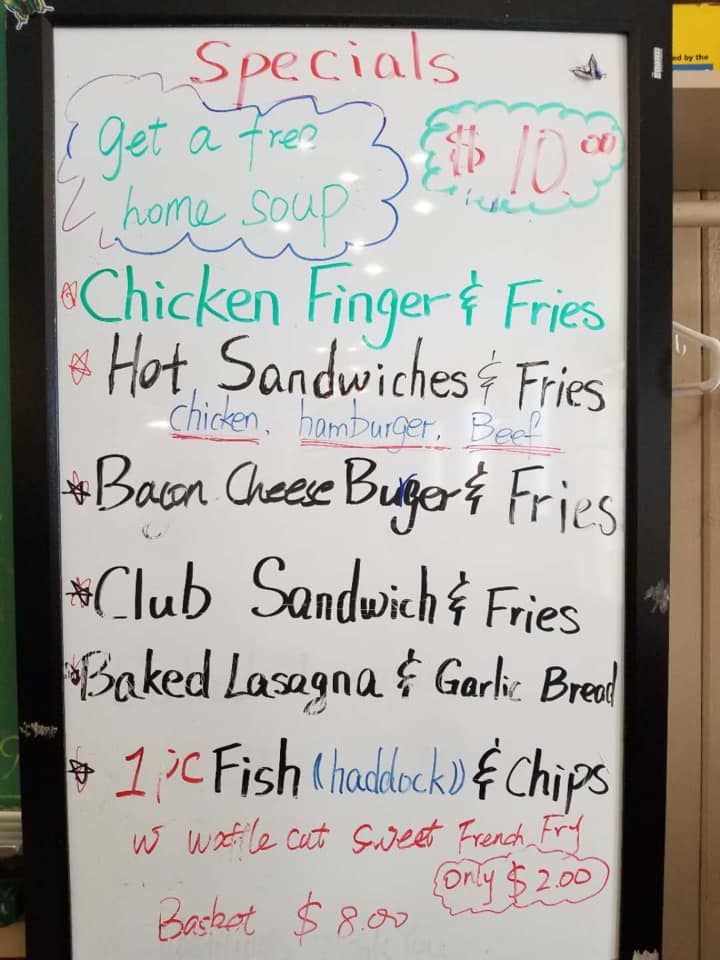 Specials
get a free
home soup
$10.00
Chicken Finger & Fries
Hot Sandwiches & Fries
chicken, hamburger, Beef
Bacon Cheese Buger & Fries
Club Sandwich & Fries
Baked Lasagna & Garlic Bread
1 pc Fish (haddock) & Chips
w waffle cut sweet French Fry
Only $2.00
Basket $8.00
ed by the